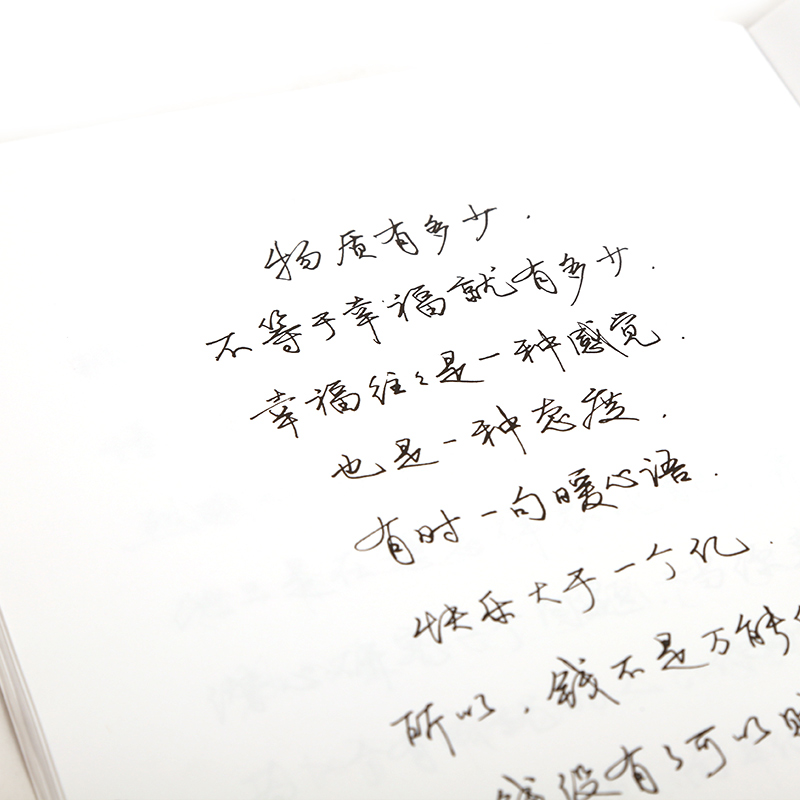 物质有多少.
不等于幸福就有多少.
幸福往々是一种感觉.
也是一种态度.
有时一句暖心语.
快乐大于一个亿.
所以.钱不是万能
钱没有了可以